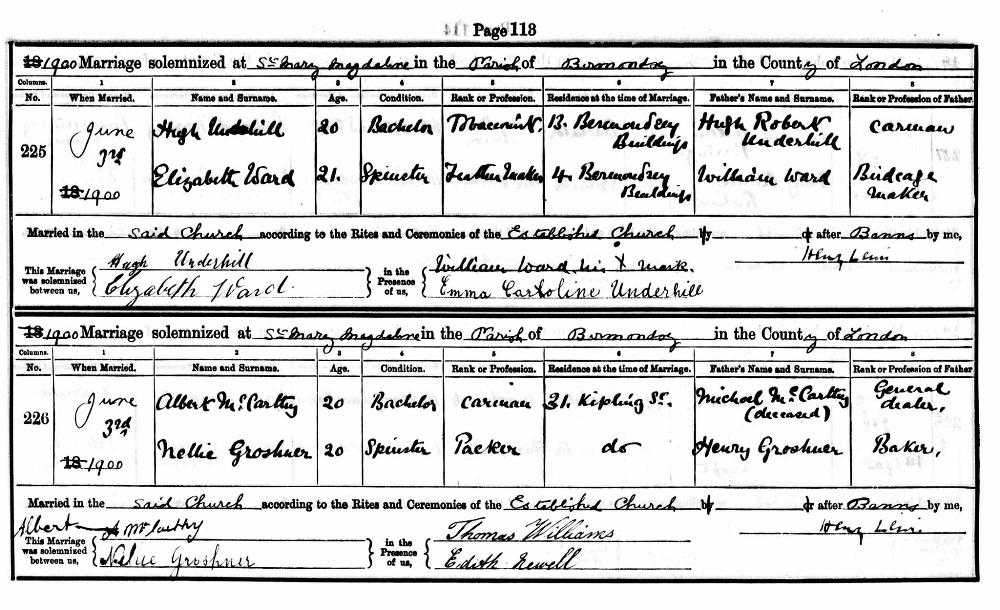 Page 113
18 1900 Marriage solemnized at St Mary Magdalene in the Parish of Bermondsey in the County of London
Columns. 1 2 3 4 5 6 7 8
No. When Married. Name and Surname. Age. Condition. Rank or Profession. Residence at the time of Marriage. Father's Name and Surname. Rank or Profession of Father
225 June 3rd 18 1900
Hugh Underhill 20 Bachelor Tobacconist. 13. Bermondsey Buildings Hugh Robert Underhill Carman
Elizabeth Ward 21. Spinster Feather Maker 4. Bermondsey Buildings William Ward Birdcage Maker
Married in the said Church according to the Rites and Ceremonies of the Established Church by or after Banns by me,
Henry Lewis
This Marriage was solemnized between us, Hugh Underhill Elizabeth Ward in the Presence of us, William Ward his X mark. Emma Caroline Underhill
18 1900 Marriage solemnized at St Mary Magdalene in the Parish of Bermondsey in the County of London
Columns. 1 2 3 4 5 6 7 8
No. When Married. Name and Surname. Age. Condition. Rank or Profession. Residence at the time of Marriage. Father's Name and Surname. Rank or Profession of Father
226 June 3rd 18 1900
Albert McCarthy 20 Bachelor Carman 31. Kipling St. Michael McCarthy (deceased) General dealer,
Nellie Groshner 20 Spinster Packer do Henry Groshner Baker,
Married in the said Church according to the Rites and Ceremonies of the Established Church by or after Banns by me,
Henry Lewis
This Marriage was solemnized between us, Albert McCarthy Nellie Groshner in the Presence of us, Thomas Williams Edith Newell